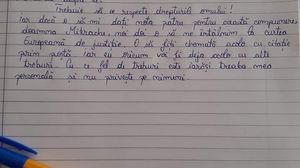 Trebuie să se respecte drepturile omului!
Iar dacă o să-mi dați nota patru pentru această compunere
doamna Mitrache, noi doi o să ne întâlnim la curtea
Europeană de justiție. O să fiți chemată acolo cu citație
prin poștă iar eu oricum voi fi deja acolo cu alte
treburi. Cu ce fel de treburi este iarăși treaba mea
personală și nu privește pe nimeni.